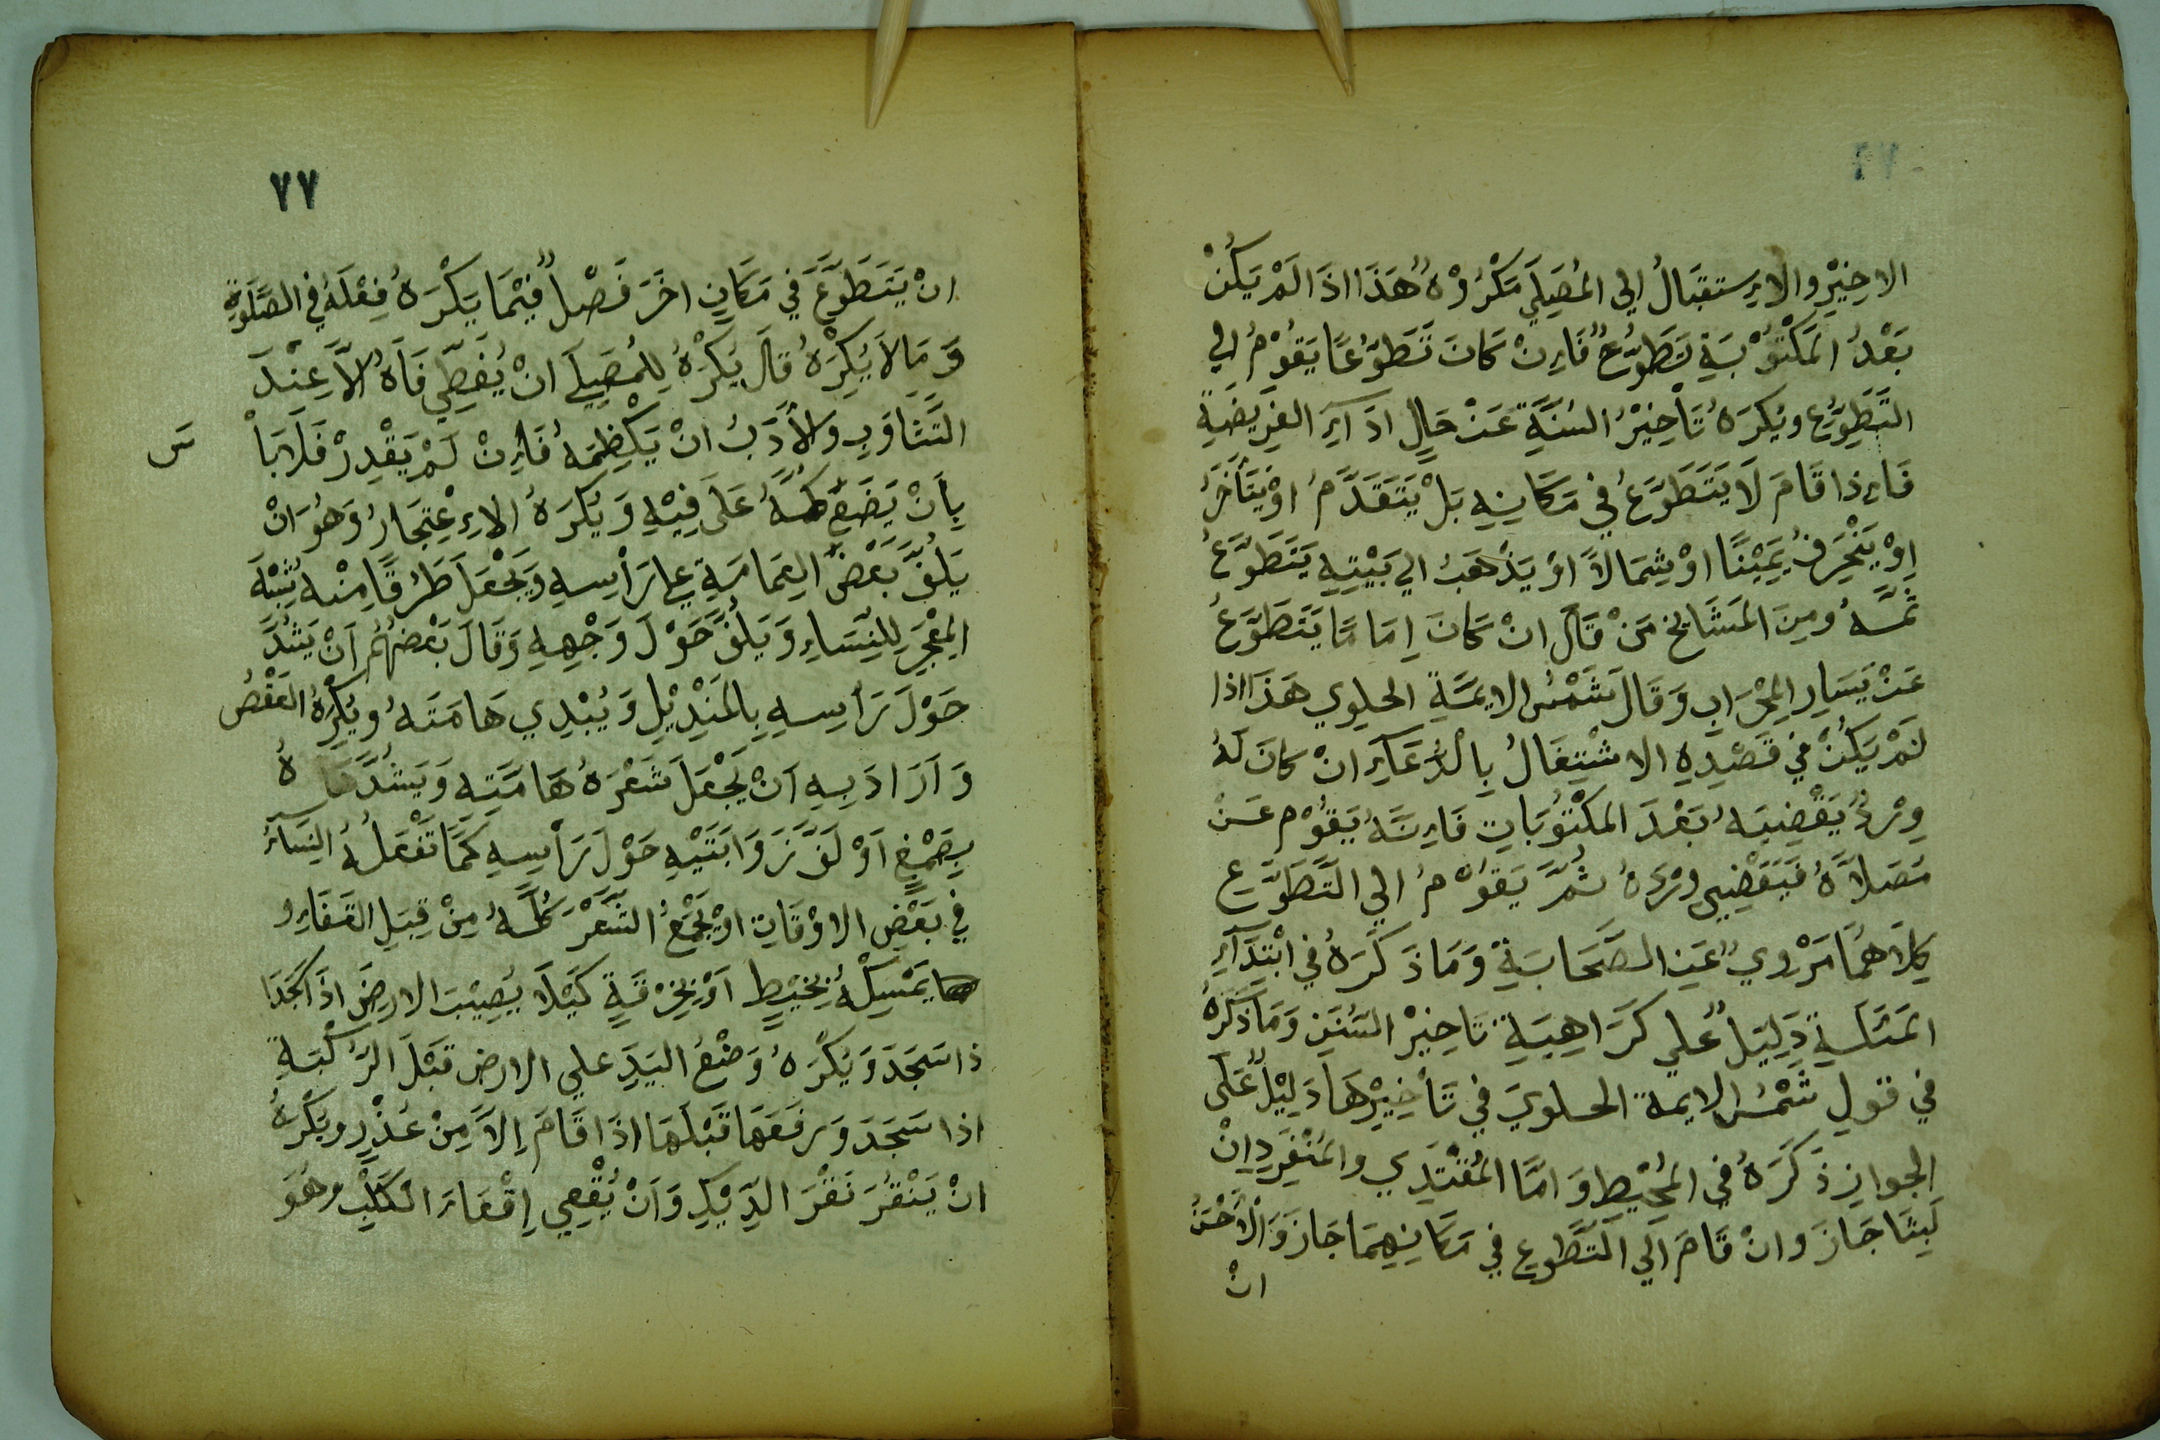 الاخِيْرِ والاِستقبَالُ الى المُصَلِّي مَكْرُوْهٌ هَذَا اذَا لَمْ يَكُنْ
بَعْدَ المَكْتُوْبَةِ تَطَوُّعٌ فَاِنْ كَانَ تَطَوُّعًا يَقُوْمُ الي
التَّطَوُّعِ ويُكْرَهُ تَأْخِيْرُ السُّنَّةِ عَنْ حَالِ ادَآءِ الفَرِيْضَةِ
فَاِذا قَامَ لَا يَتَطَوَّعُ في مَكَانِهِ بَلْ يَتَقَدَّمُ اوْ يَتَأَخَّرُ
اوْ يَنْحَرِفُ يَمِيْنًا اوْ شِمَالًا اوْ يَذْهَبُ الي بَيْتِهِ يَتَطَوَّعُ
ثَمَّهُ ومِنَ المَشَايِخِ مَنْ قَالَ انْ كَانَ اِمَامًا يَتَطَوَّعُ
عَنْ يَسَارِ المِحْرَابِ وَقَالَ شَمْسُ الايمَّةِ الحلوِي هَذَا اذا
لَمْ يَكُنْ في قَصْدِهِ الاشْتِغَالُ بِالدُّعَآءِ انْ كانَ لَهُ
وِرْدٌ يَقْضِيَهُ بَعْدَ المكْتُوْبَاتِ فَاِنَّهُ يَقُوْم عَنْ
مُصَلاَّهُ فَيَقْضِيى وِرْدَهُ ثُمَّ يَقُوْمُ الي التَّطَوَّعِ
كِلاَهُمَا مَرْوِيٌّ عَنِ الصَّحَابَةِ وَمَاذَكَرَهُ في ابْتِدَآءِ
المَسَْلَةِ دَلِيْلٌ عَلي كَرَاهِيَةِ تَاخِيْرِ السُّنَنِ وَمَا ذَكَرَهُ
في قولِ شَمْسُ الايمة الحلوي في تَأْخِيْرِهَا دَلِيْلٌ عَلَى
الجوازِ ذَكَرَهُ في المُحِيْطِ وَامَّا المُقْتَدِي والمُنْفَرِدِ انْ
لَبِثَا جَازَ وانْ قَامَ الَي التَّطَوعِ في مَكَانِهِمَا جَازَ وَالْاَحْسَنُ
انْ
٧٧
انْ يَتَطَوَّعَ في مَكَانٍ اخَرَ فَصْلٌ فِيْمَا يَكْرَهُ فِعْلَهُ في الصَّلَوةِ
وَمَا لاَ يُكْرَهُ قَالَ يُكْرَهُ لِلمُصَلِّي انْ يُغَطِّي فَاهُ الاَّ عِنْدَ
التَّثَاوَبِ والأَدَبُ انْ يَكْظِمَهُ فَاِنْ لَمْ يَقْدِرْ فَلَا بَاْ
سَ
بِاَنْ يَضَعَ كُمَّهُ عَلَى فِيْهِ وَيُكْرَهُ الاِعْتِجَارُ وَهُوَ انْ
يَلُفَّ بَعْضَ العِمَامَةِ علي رَأْسِهِ وَيَجْعَلَ طَرْفًا مِنْه شِبْهَ
المِعْجَرِ لِلنِّسَاءِ وَيَلُفَّ حَوْلَ وَجْهِهِ وَقَالَ بَعْضُهُمْ اَنْ يَشُدَّ
حَوْلَ رَأْسِهِ بِالمَنْدِيْلِ وَيُبْدِي هَامَتَهُ ويُكْرَهُ العَقْصُ
وَاَرَادَ بِهِ اَنْ يَجْعَلَ شَعْرَهُ هَامَّتِهِ وَيَشُدَّ
بِصَمْغٍ اَوْ لَفَّ ذَوَابَتَيْهِ حَوْلَ رَأْسِهِ كَمَا تَفْعَلُهُ النِّسَآءُ
في بَعْضِ الاوْقَاتِ اوْ يَجْمَعُ الشَّعْرَ كُلَّهُ مِنْ قِبَلِ القَفَاءِ و
يَمْسِكُهُ بِخَيْطٍ اَوْ بِخِرْقَةٍ كَيْلَا يُصِيْبَ الارضَ اذَا سَجَدَا
ذا سَجَدَ وَيُكْرَهُ وَضْعُ اليَدِ علي الارض قَبْلَ الرُّكْبَةِ
اذا سَجَدَ وَرفَعَهَا قَبْلَهَا اذَا قَامَ اِلاَّ مِنْ عُذْرٍ ويُكْرَهُ
انْ يَنْقُرَ نَقْرَ الدِّيْكِ وَاَنْ يُقْعِي اِقْعَاءَ الكَلْبِ وهُوَ